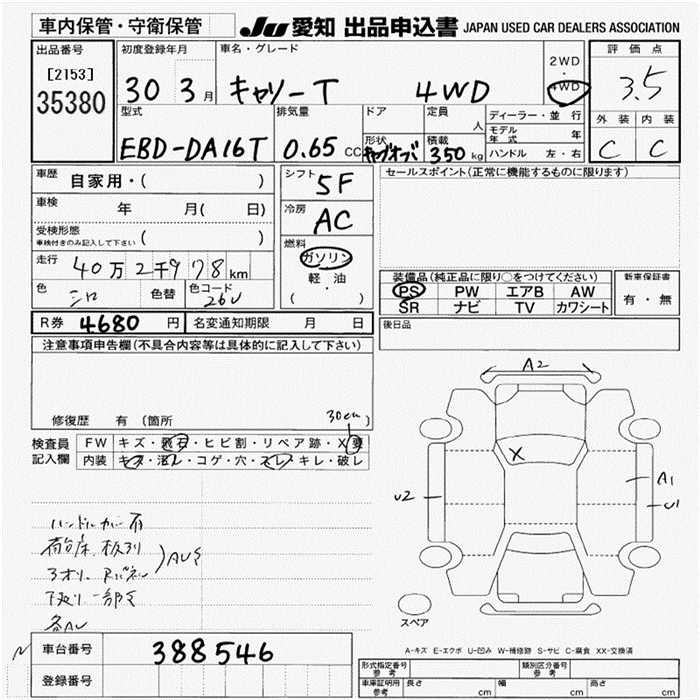 車内保管・守衛保管
JU 愛知 出品申込書 JAPAN USED CAR DEALERS ASSOCIATION
出品番号
[2153]
35380
初度登録年月
30 3月
車名・グレード
キャリーT 4WD
2WD
・
4WD
評価点
3.5
外装 内装
C C
型式
EBD-DA16T
排気量
0.65 CC
ドア
形状
キャブオーバ
定員
人
積載
350 kg
ディーラー・並行
モデル年式 年
ハンドル 左・右
車歴 自家用・( )
車検 年 月( 日)
受検形態
車検付きのみ記入して下さい ( )
走行 40万2千978km
色 シロ 色替 色コード 26U
シフト
5F
冷房
AC
燃料
ガソリン
軽・油
( )
セールスポイント(正常に機能するものに限ります)
装備品(純正品に限り○をつけてください)
PS PW エアB AW
SR ナビ TV カワシート
新車保証書
有・無
後日品
R券 4680 円 名変通知期限 月 日
注意事項申告欄(不具合内容等は具体的に記入して下さい)
修復歴 有 (箇所 )
30cm
検査員
記入欄
FW キズ・飛石・ヒビ割・リペア跡・X要
内装 キズ・汚レ・コゲ・穴・スレ・キレ・破レ
ハンドルカバー有
荷台床
下廻り一部
A2
X
U2
A1
U1
スペア
A-キズ E-エクボ U-凹み W-補修跡 S-サビ C-腐食 XX-交換済
車台番号 388546
登録番号
形式指定番号
参考
類別区分番号
参考
車庫証明用
参考
長さ cm 幅 cm 高さ cm